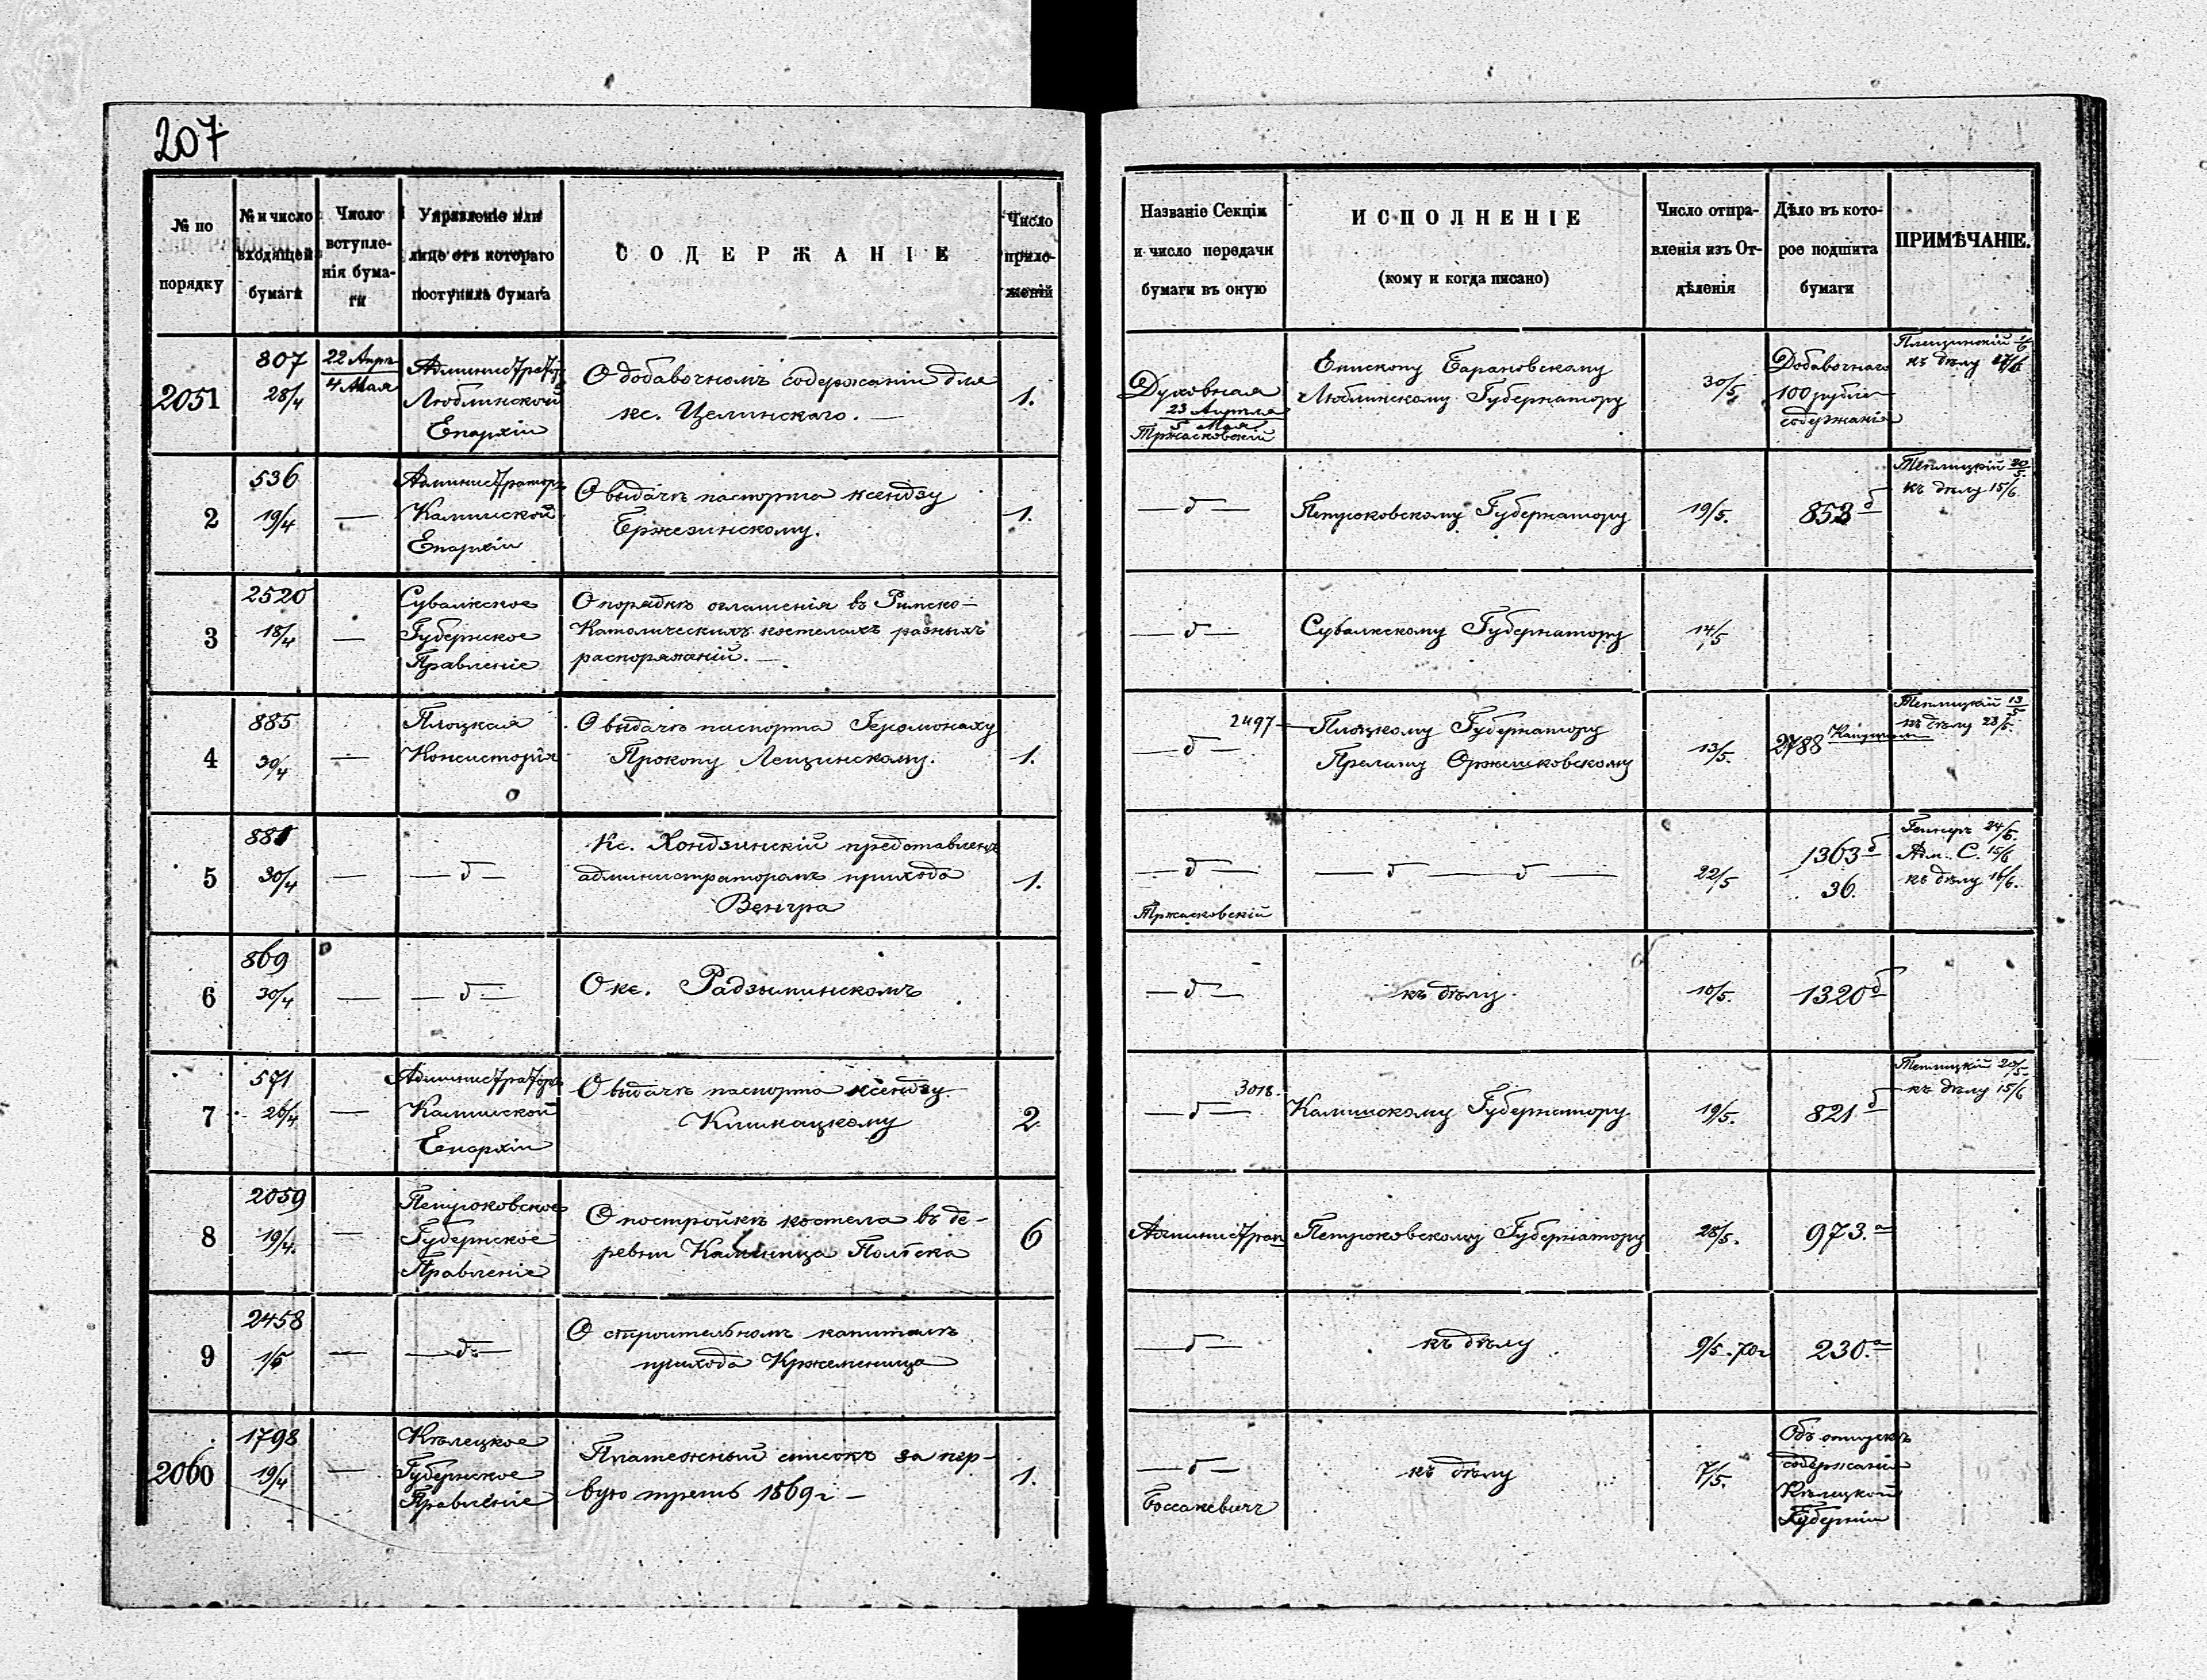 207
№ по порядку
№ и число входящей бумаги
Число вступленія бумаги
Управленіе или лице отъ котораго поступила бумага
СОДЕРЖАНІЕ
Число приложеній
Названіе Секціи и число передачи бумаги въ оную
ИСПОЛНЕНІЕ
(кому и когда писано)
Число отправленія изъ Отдѣленія
Дѣло въ которое подшита бумаги
ПРИМѢЧАНІЕ.
2051
807
28/4
22 Апрѣ
4 Мая
Администраторъ
Люблинской
Епархіи
О добавочномъ содержаніи для
кс. Целинскаго. —
1.
Духовная
23 Апрѣля
5 Мая
Тржасковскій
Епископу Барановскому
Люблинскому Губернатору
30/5
Добавочнаго
100 рубле
содержанія
къ дѣлу 27/6
2
536
19/4
—
Администраторъ
Калишской
Епархіи
О выдачѣ паспорта ксендзу
Бржезинскому.
1.
— д —
Петроковскому Губернатору
19/5.
853 б
Теплицкій 20/5.
къ дѣлу 15/6.
3
2520
18/4
—
Сувалкское
Губернское
Правленіе
О порядкѣ оглашенія въ Римско-
Католическихъ костелахъ разныхъ
распоряженій. —
— д —
Сувалкскому Губернатору
14/5
4
885
30/4
—
Плоцкая
Консисторія
О выдачѣ паспорта Іеромонаху
Прокопу Лещинскому.
1.
— д —
2497 —
Плоцкому Губернатору
Прелату Оржешковскому
13/5.
2788
Теплицкій 13/5
къ дѣлу 23/5.
5
881
30/4
—
— д —
Кс. Хондзинскій представленъ
администраторомъ прихода
Венгра
1.
— д —
Тржасковскій
— д — д —
22/5
1363 б
36.
24/5.
Адм. С. 15/6
къ дѣлу 16/6.
6
869
30/4
—
— д —
О кс. Радзыминскомъ
— д —
къ дѣлу.
10/5.
1320 б
7
571
26/4
—
Администраторъ
Калишской
Епархіи
О выдачѣ паспорта ксендзу
Клишкацкому
2
— д —
3018.
Калишскому Губернатору
19/5.
821 б
Теплицкій 20/5
къ дѣлу 15/6
8
2059
19/4.
—
Петроковское
Губернское
Правленіе
О постройкѣ костела въ де-
ревни Каменица Польска
6
Администрац
Петроковскому Губернатору
28/5.
973. а
9
2458
1/5
—
— д —
О строительномъ капиталѣ
прихода Кржеменица
— д —
къ дѣлу
9/5. 70 г
230. а
2060
1798
19/4
—
Кѣлецкое
Губернское
Правленіе
Платежный списокъ за пер-
вую треть 1869 г —
1.
— д —
къ дѣлу
7/5.
Объ отпускѣ
содержанія
Кѣлецкой
Губерніи